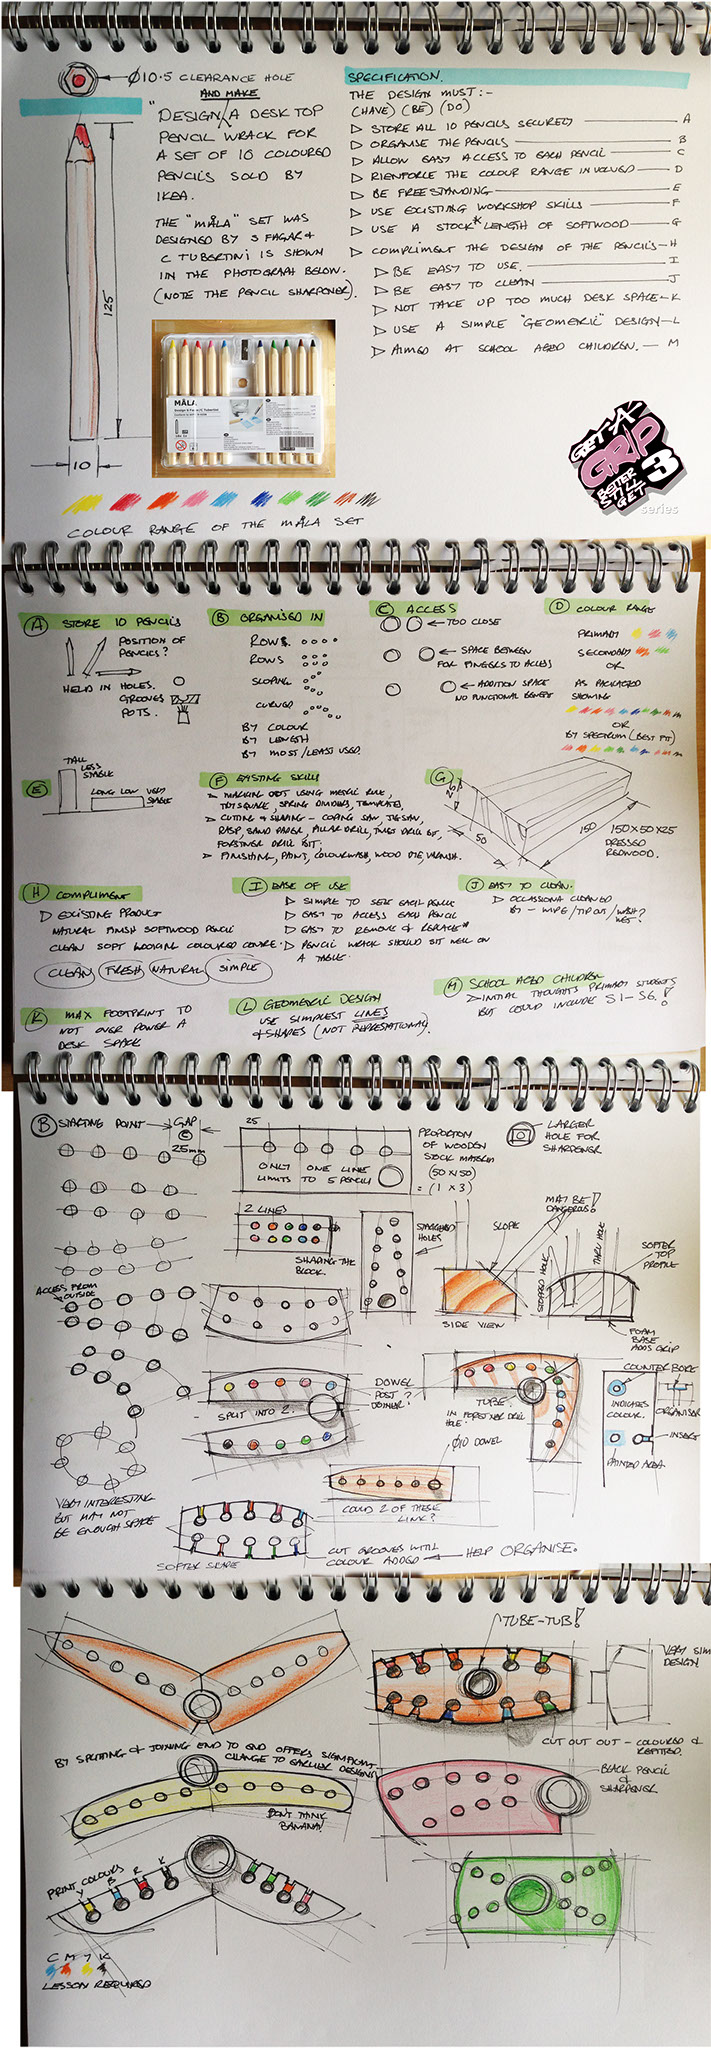 Ø10.5 CLEARANCE HOLE
AND MAKE
"DESIGN A DESK TOP
PENCIL WRACK FOR
A SET OF 10 COLOURED
PENCILS SOLD BY
IKEA.
THE "MÅLA" SET WAS
DESIGNED BY S FAGER &
C TUBERTINI IS SHOWN
IN THE PHOTOGRAPH BELOW.
(NOTE THE PENCIL SHARPENER).
125
10
MÅLA
COLOUR RANGE OF THE MÅLA SET
SPECIFICATION.
THE DESIGN MUST:-
(HAVE) (BE) (DO)
STORE ALL 10 PENCILS SECURELY A
ORGANISE THE PENCILS B
ALLOW EASY ACCESS TO EACH PENCIL C
RIENFORCE THE COLOUR RANGE INVOLVED D
BE FREESTANDING E
USE EXISTING WORKSHOP SKILLS F
USE A STOCK* LENGTH OF SOFTWOOD G
COMPLIMENT THE DESIGN OF THE PENCILS H
BE EASY TO USE. I
BE EASY TO CLEAN J
NOT TAKE UP TOO MUCH DESK SPACE K
USE A SIMPLE "GEOMERIC" DESIGN L
AIMED AT SCHOOL AGED CHILDREN. M
GET-A-
GRIP
BETTER
STILL
GET
3
series
A STORE 10 PENCILS
POSITION OF
PENCILS?
HELD IN HOLES.
GROOVES
POTS.
B ORGANISED IN
ROWS.
ROWS
SLOPING
CURVED
BY COLOUR
BY LENGTH
BY MOST/LEAST USED.
C ACCESS
TOO CLOSE
SPACE BETWEEN
FOR FINGERS TO ACCESS
ADDITION SPACE
NO FUNCTIONAL BENEFIT
D COLOUR RANGE
PRIMARY
SECONDARY
OR
AS PACKAGED
SHOWING
OR
BY SPECTRUM (BEST FIT)
E
TALL
LESS
STABLE
LONG LOW VERY
STABLE
F EXISTING SKILLS
MARKING OUT USING METRIC RULE,
TRY SQUARE, SPRING DIVIDERS, TEMPLATES,
CUTTING & SHAPING - COPING SAW, JIGSAW,
RASP, SAND PAPER, PILLAR DRILL, TWIST DRILL BIT,
FORSTNER DRILL BIT.
FINISHING, PAINT, COLOURWASH, WOOD DYE, VARNISH.
G
25
50
150
150x50x25
DRESSED
REDWOOD.
H COMPLIMENT
EXISTING PRODUCT
NATURAL FINISH SOFTWOOD PENCIL
CLEAN SOFT WORKING COLOURED CENTRE.
CLEAN FRESH NATURAL SIMPLE
I EASE OF USE
SIMPLE TO SEE EACH PENCIL
EASY TO ACCESS EACH PENCIL
EASY TO REMOVE & REPLACE*
PENCIL WRACK SHOULD SIT WELL ON
A TABLE.
J EASY TO CLEAN.
OCCASSIONAL CLEANED
BY - WIPE/TIP OUT/WASH?
WET?
K MAX FOOTPRINT TO
NOT OVER POWER A
DESK SPACE
L GEOMERIC DESIGN
USE SIMPLEST LINES
& SHAPES (NOT REPRESTATIONAL).
M SCHOOL AGED CHILDREN
INITIAL THOUGHTS PRIMARY STUDENTS
BUT COULD INCLUDE S1-S6!
B STARTING POINT
GAP
C
25mm
ACCESS FROM
OUTSIDE
VERY INTERESTING
BUT MAY NOT
BE ENOUGH SPACE
25
ONLY ONE LINE
LIMITS TO 5 PENCILS
PROPORTION
OF WOODEN
STOCK MATERIAL
(50x150)
= (1 x 3)
LARGER
HOLE FOR
SHARPENER
2 LINES
SHAPING THE
BLOCK.
STAGGERED
HOLES
SLOPE
MAY BE
DANGEROUS!
SIDE VIEW
STOPPED HOLE
THRU HOLE
SOFTER
TOP
PROFILE
FOAM
BASE
ADDS GRIP
SPLIT INTO 2.
DOWEL
POST?
JOINER!
TUBE.
IN FORSTNER DRILL
HOLE.
Ø10 DOWEL
COUNTER BORE
INDICATES
COLOUR.
ORGANISER
INSERT
PAINTED AREA
COULD 2 OF THESE
LINK?
SOFTER SHAPE
CUT GROOVES WITH
COLOUR ADDED
HELP ORGANISE.
TUBE-TUB!
VERY SIM
DESIGN
CUT OUT OUT - COLOURED &
REFITTED.
BY SPLITTING & JOINING END TO END OFFERS SIGNIFICANT
CHANGE TO EARLIER DESIGNS
DON'T THINK
BANANA!
BLACK PENCIL
&
SHARPENER
PRINT COLOURS
Y B R K
C M Y K
LESSON REQUIRED